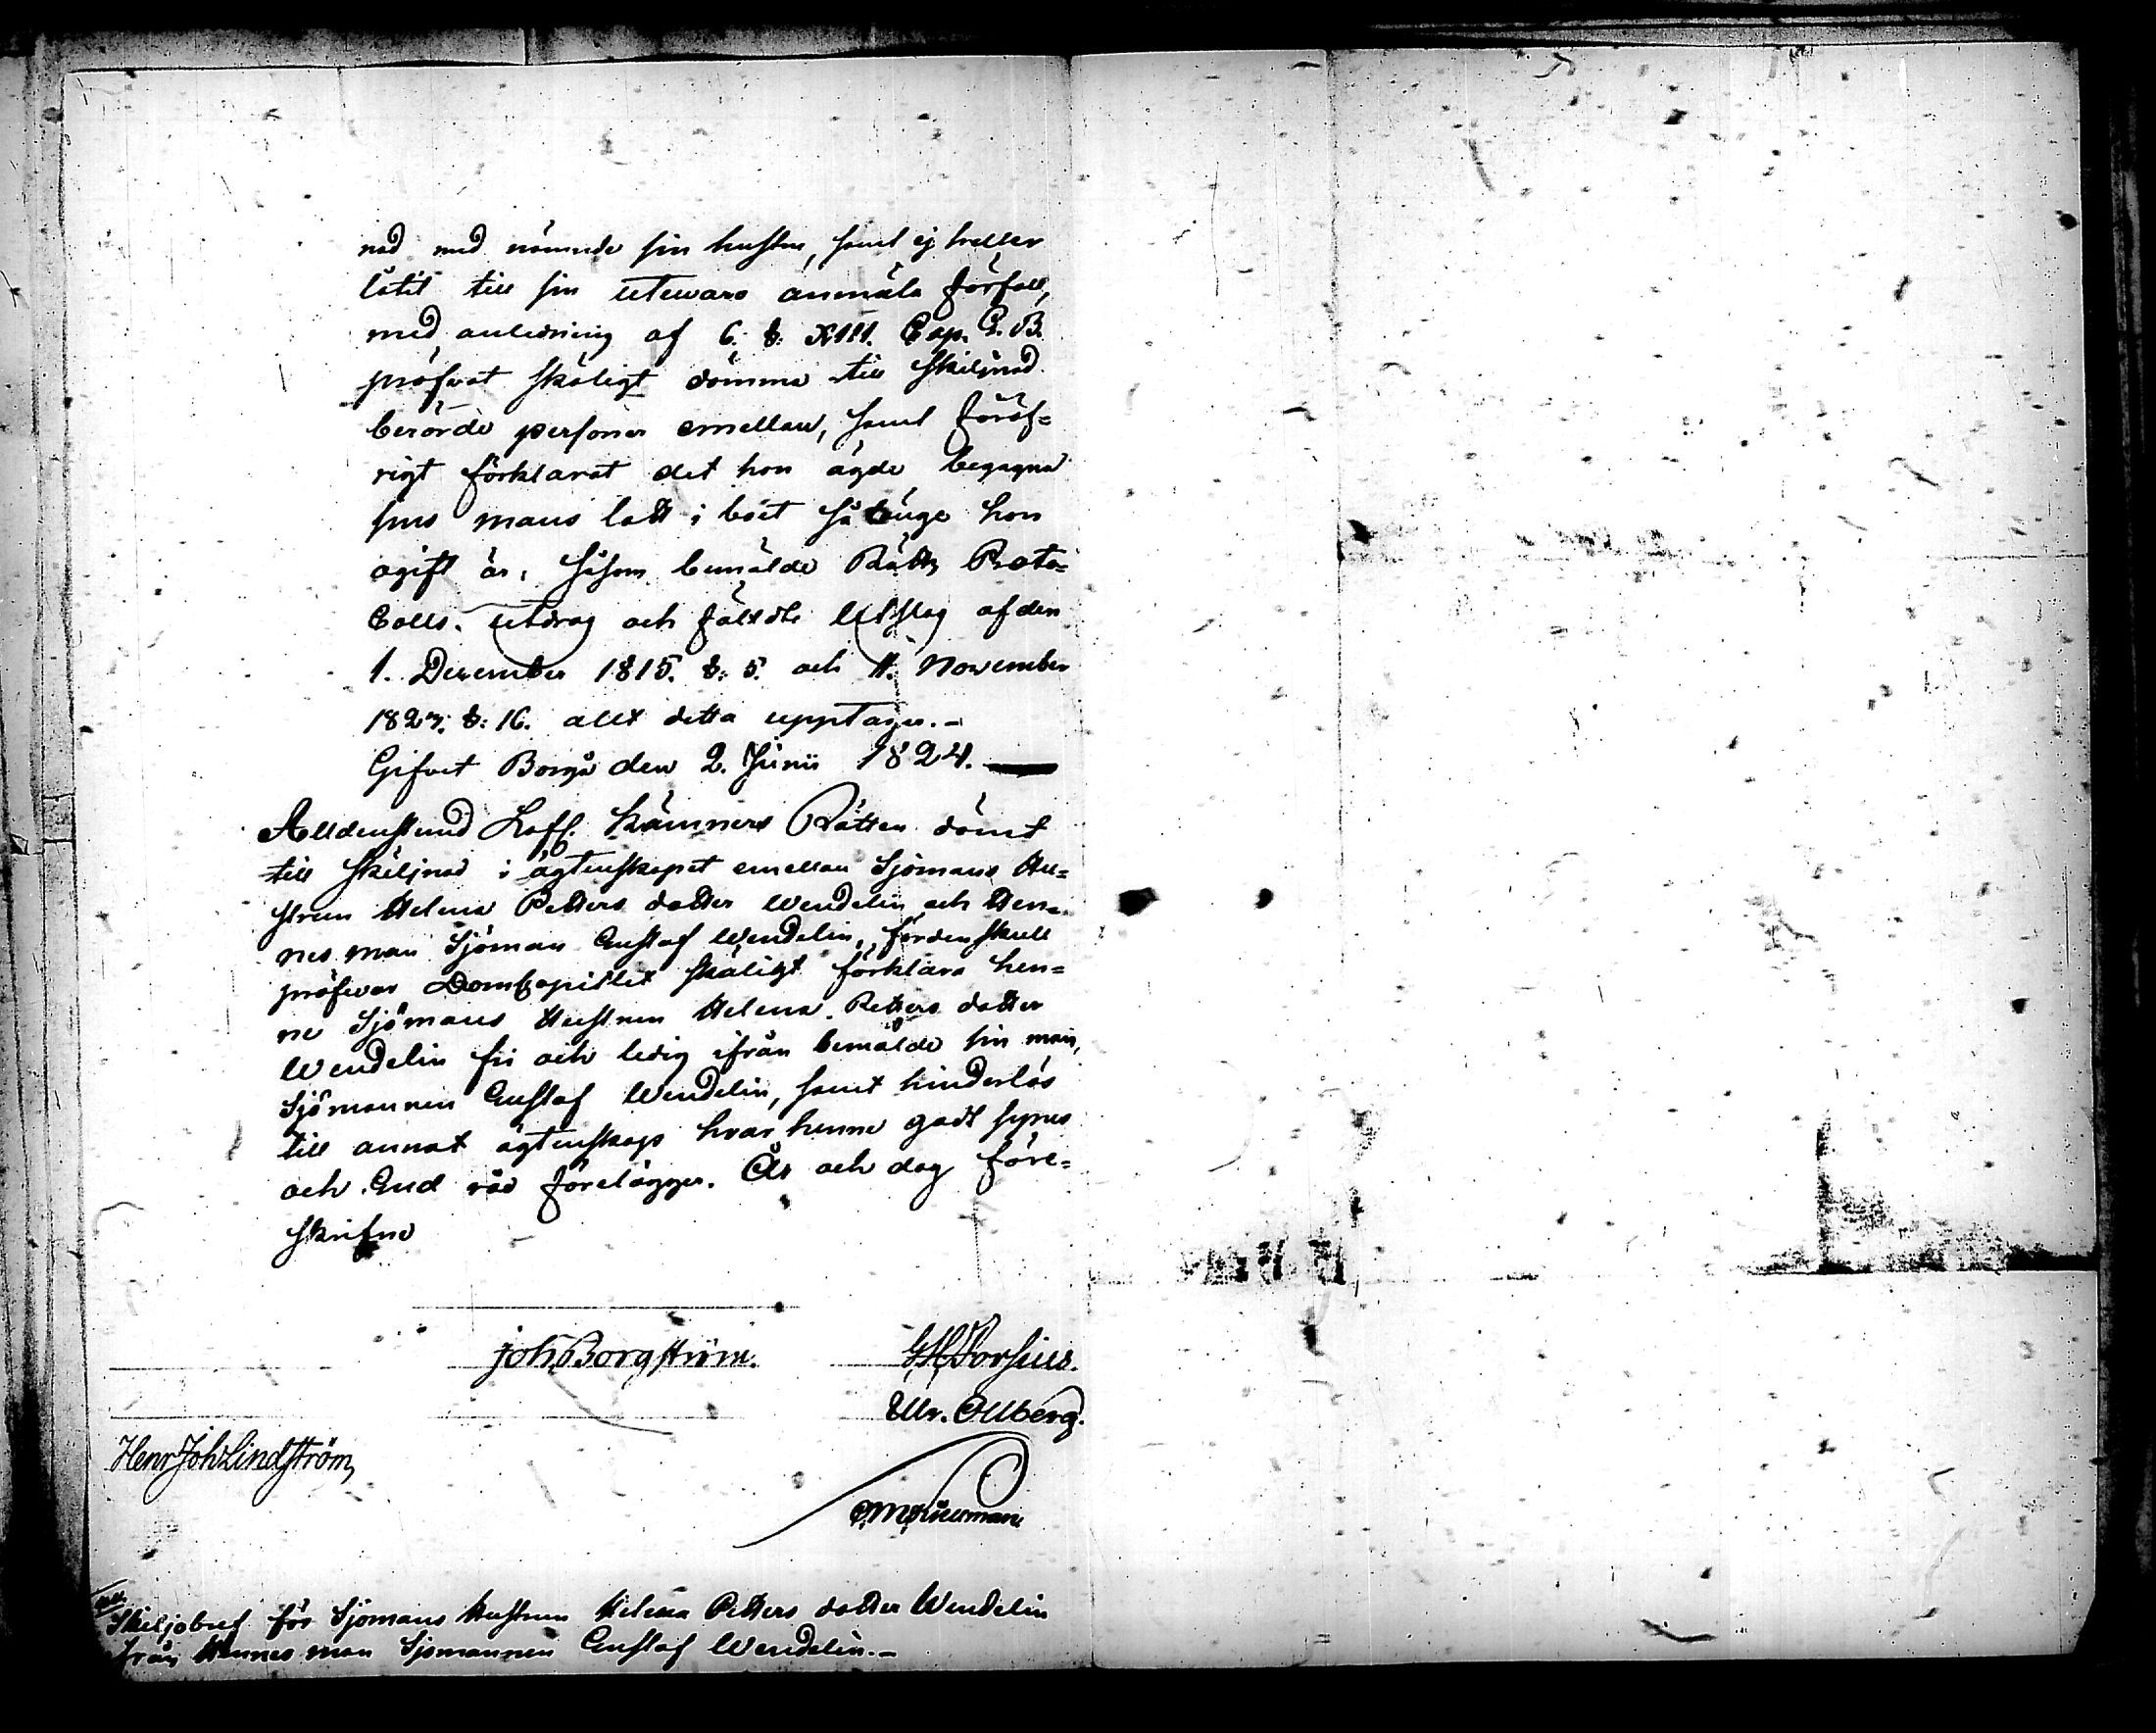 nad med nämnde sin hustru, samt ej heller
låtit till sin utewaro anmäla förfall,
med anledning af 6. §. XIII. Cap. G. B.
pröfvat skäligt dömma till skiljnad
berörde personer emellan, samt föröf-
rigt förklarat det hon ägde begagna
sins mans lott i boet så länge hon
ogift är, såsom bemälde Rätts Proto-
Colls. utdrag och fäldte Utslag af den
1. December 1815. §. 5. och 11. November
1823. §. 16. allt detta upptager.-
Gifvet Borgå den 2. Junii 1824.
Alldenstund Loff. Kämners Rätten dömt
till skiljnad i ägtenskapet emellan Sjömans Hu-
strun Helena Petters dotter Wendelin och Hen-
nes man Sjöman Gustaf Wendelin, fördenskull
pröfvar DomCapitlet skäligt förklara hen-
ne Sjömans Hustrun Helena Petters dotter
Wendelin fri och ledig ifrån bemälde sin man,
Sjömannen Gustaf Wendelin, samt hinderlös
till annat ägtenskap hvar henne godt synes
och Gud råd förelägger. År och dag före-
skrifne
Joh. Borgström. G. H. Forsius.
Ulr. Ollberg.
Henr Joh Lindström
Skiljobref för Sjömans Hustrun Helena Petters dotter Wendelin
från Hennes man Sjömannen Gustaf Wendelin.-